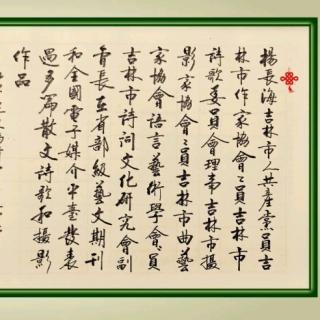 楊長海吉林市人共產黨員吉
林市作家協會會員吉林市
詩歌委員會理事吉林市攝
影家協會會員吉林市曲藝
家協會語言藝術學會會員
吉林市詩詞文化研究會副
會長在省部級藝文期刊
和全國電子媒介平臺發表
過多篇散文詩歌和攝影
作品